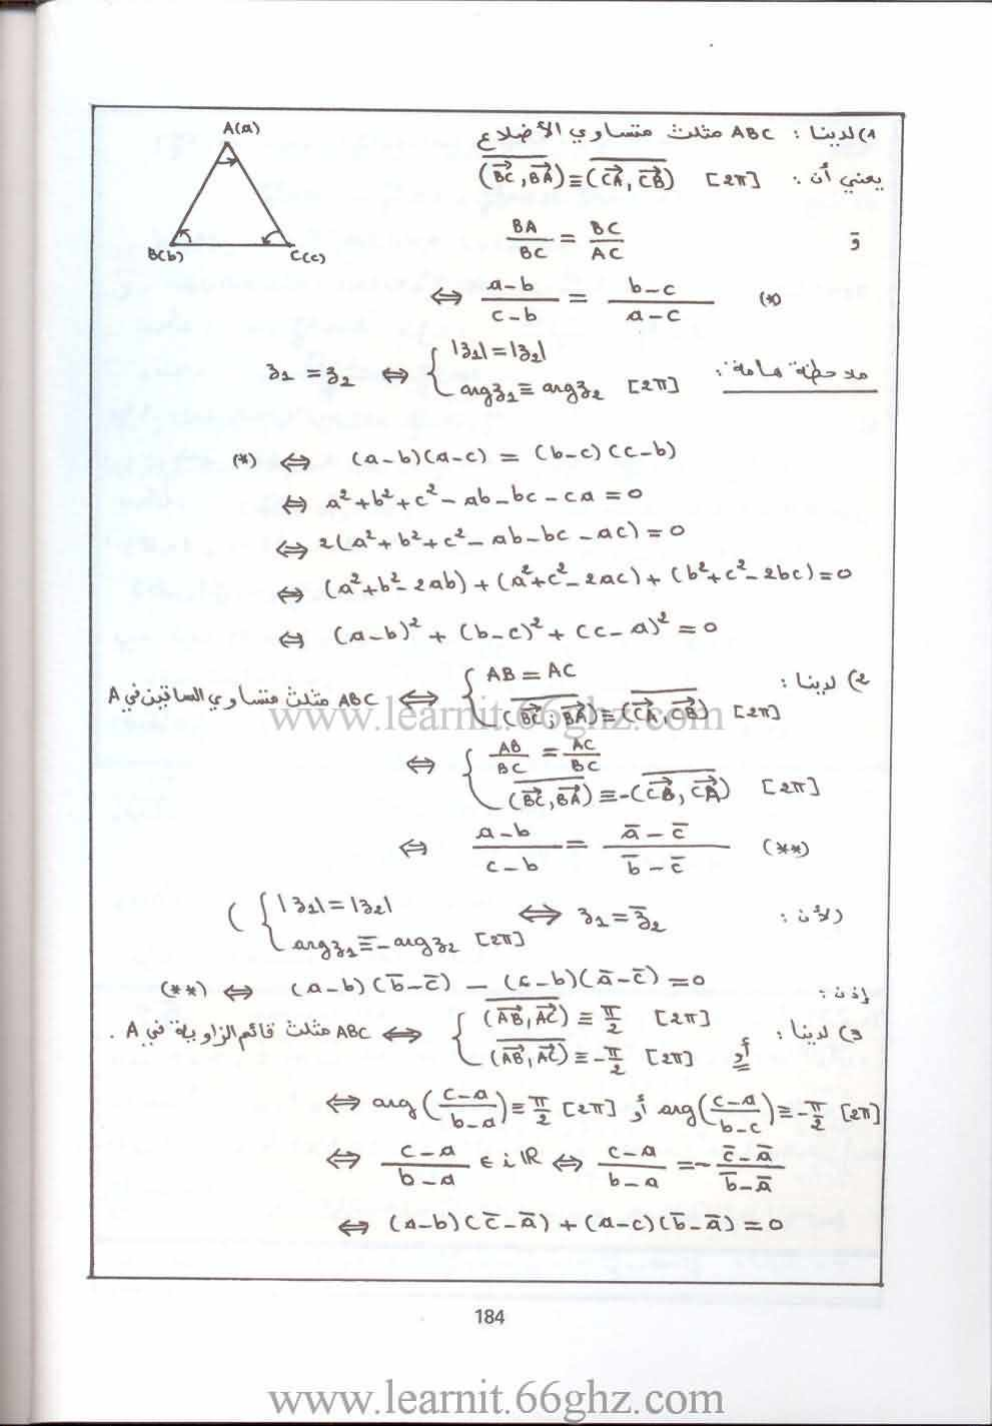 A(a)
B(b) C(c)
1) لدينا : ABC مثلث متساوي الأضلاع
يعني أن : (BC→, BA→) ≡ (CA→, CB→) [2π]
و BA/BC = BC/AC
⇔ (a-b)/(c-b) = (b-c)/(a-c) (*)
ملاحظة هامة : z₁ = z₂ ⇔ { |z₁| = |z₂|
arg z₁ ≡ arg z₂ [2π]
(*) ⇔ (a-b)(a-c) = (b-c)(c-b)
⇔ a² + b² + c² - ab - bc - ca = 0
⇔ 2(a² + b² + c² - ab - bc - ac) = 0
⇔ (a² + b² - 2ab) + (a² + c² - 2ac) + (b² + c² - 2bc) = 0
⇔ (a-b)² + (b-c)² + (c-a)² = 0
2) لدينا : ABC مثلث متساوي الساقين في A ⇔ { AB = AC
(BC→, BA→) ≡ (CA→, CB→) [2π]
⇔ { AB/BC = AC/BC
(BC→, BA→) ≡ -(CB→, CA→) [2π]
⇔ (a-b)/(c-b) = (a̅ - c̅)/(b̅ - c̅) (**)
(لأن : z₁ = z̅₂ ⇔ { |z₁| = |z₂|
arg z₁ ≡ - arg z₂ [2π] )
إذن : (**) ⇔ (a-b)(b̅ - c̅) - (c-b)(a̅ - c̅) = 0
3) لدينا : ABC مثلث قائم الزاوية في A . ⇔ { (AB→, AC→) ≡ π/2 [2π]
أو (AB→, AC→) ≡ -π/2 [2π]
⇔ arg((c-a)/(b-a)) ≡ π/2 [2π] أو arg((c-a)/(b-c)) ≡ -π/2 [2π]
⇔ (c-a)/(b-a) ∈ iℝ ⇔ (c-a)/(b-a) = -(c̅ - a̅)/(b̅ - a̅)
⇔ (a-b)(c̅ - a̅) + (a-c)(b̅ - a̅) = 0
www.learnit.66ghz.com
184
www.learnit.66ghz.com